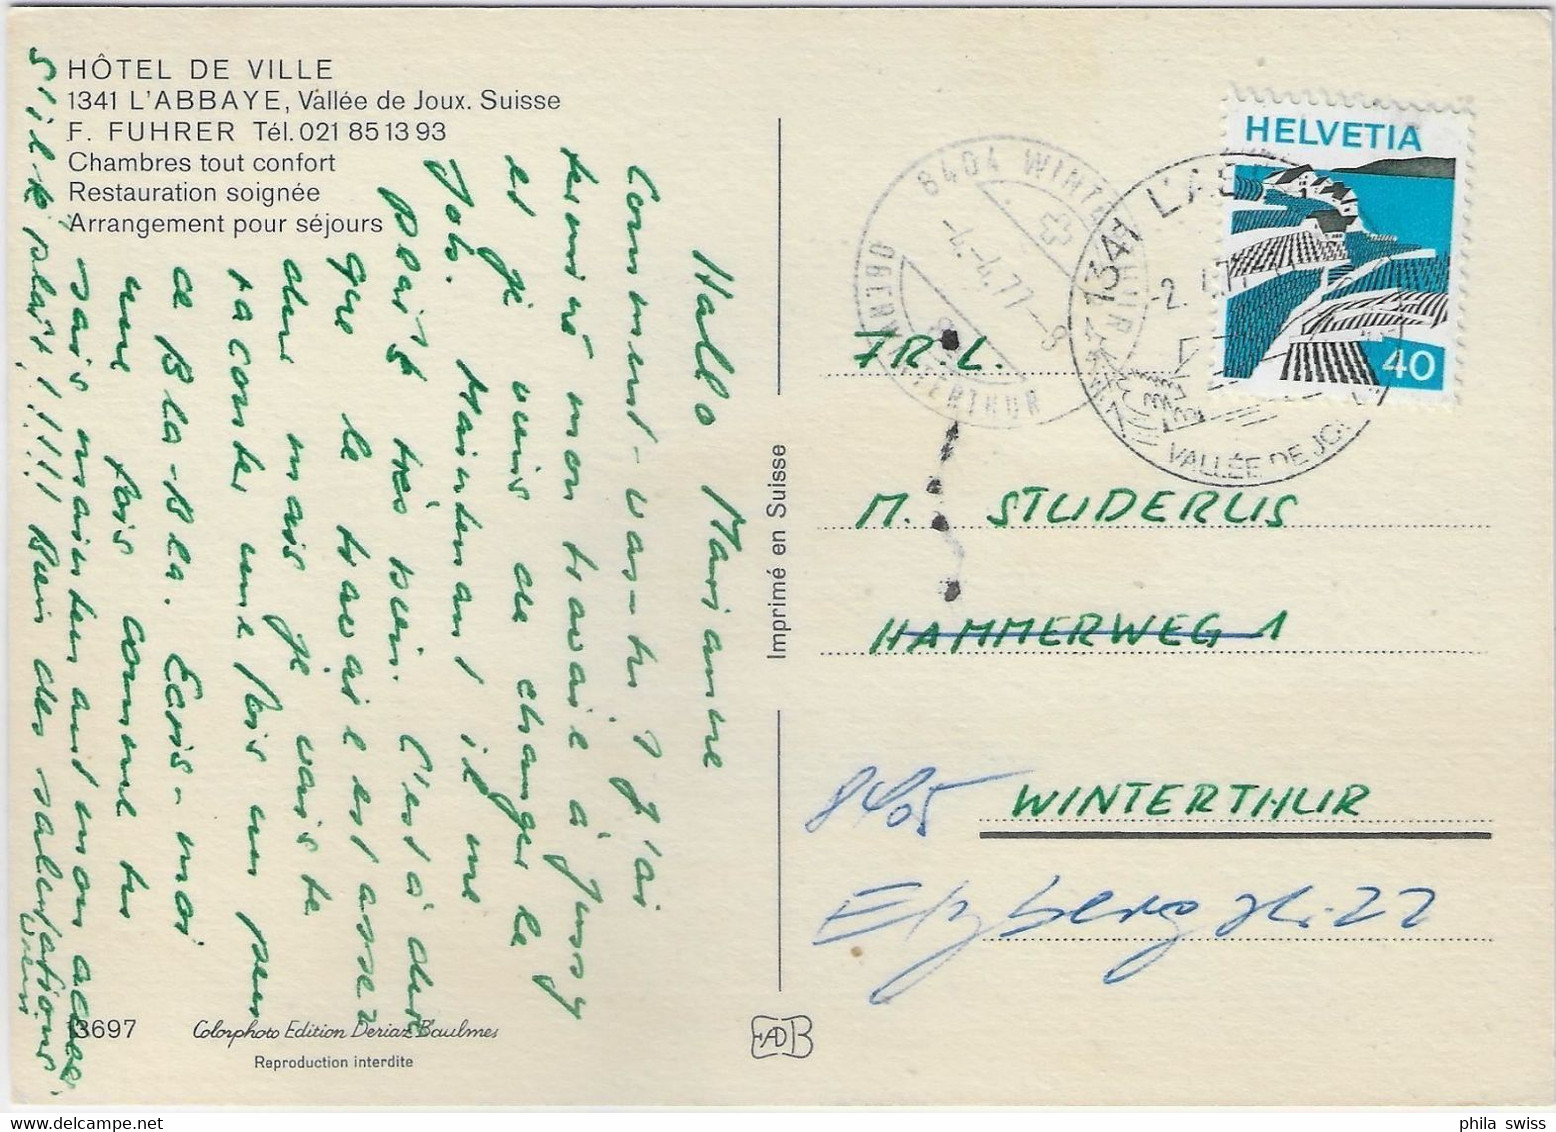 HÔTEL DE VILLE
1341 L'ABBAYE, Vallée de Joux. Suisse
F. FUHRER Tél. 021 85 13 93
Chambres tout confort
Restauration soignée
Arrangement pour séjours
Hallo Marianne
Comment-vas-tu? J'ai
terminé mon travaile à Jussy
et je viens de changer le
Job. Maintenant il me
plaît très bien. C'est à dire
que le travaile est assez
dur mais je vais te
raconter une fois un peu
ce Bla-Bla. Ecris-moi
une fois comme tu
sais maintenant mon adresse
s'il-te plaît!!!!!! Bien des salutations
13697
Colorphoto Edition Deriaz Baulmes
Reproduction interdite
Imprimé en Suisse
EADB
HELVETIA
40
1341 L'AB
-2. 4.77
VALLÉE DE JOUX
8404 WINTERTHUR
-4.-4.77--8
OBERWINTERTHUR
FRL.
M. STUDERUS
HAMMERWEG 1
8405 WINTERTHUR
Elzbergstr. 22
phila swiss